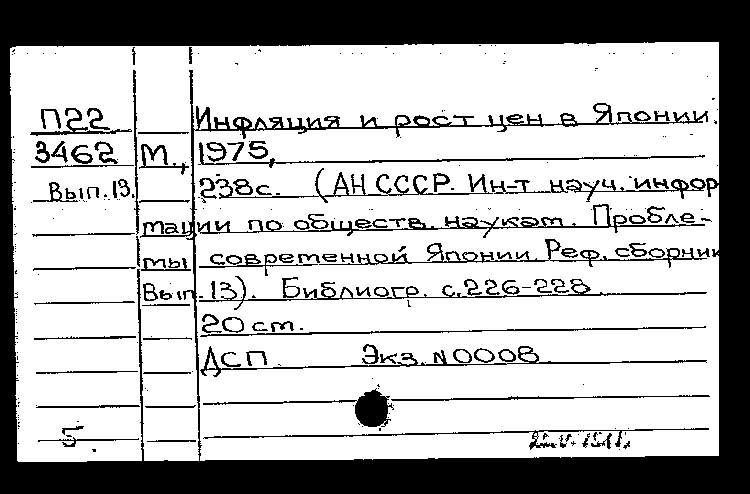 П22 Инфляция и рост цен в Японии.
3462 М., 1975,
Вып.13. 238с. (АН СССР. Ин-т науч. инфор
мации по обществ. наукам. Пробле-
мы современной Японии. Реф. сборник
Вып.13). Библиогр. с.226-228.
20 см.
ДСП. Экз. N0008.
5.